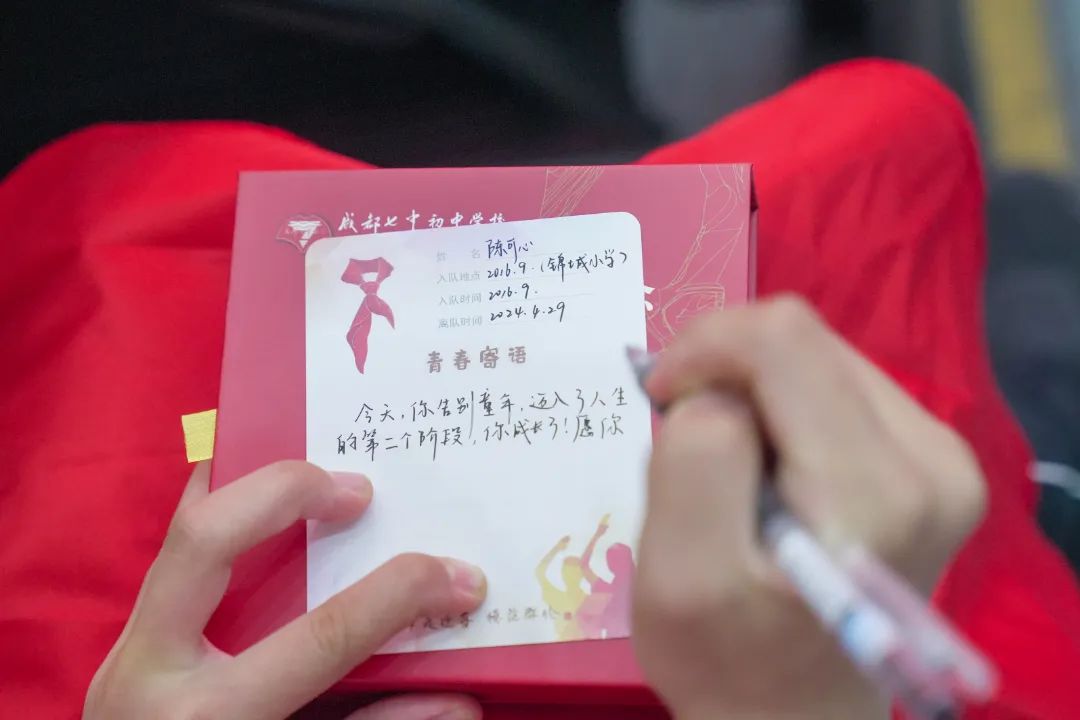 成都七中初中学校
姓 名 陈可心
入队地点 2016.9.(锦城小学)
入队时间 2016.9.
离队时间 2024.4.29
青春寄语
今天,你告别童年,迈入了人生
的第二个阶段,你成长了!愿你